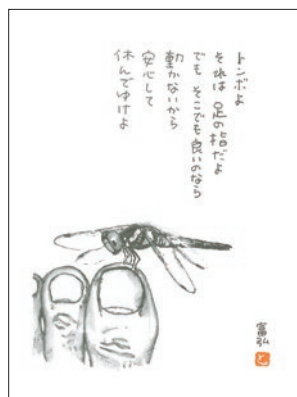 トンボよ
それは 足の指だよ
でも そこでも良いのなら
動かないから
安心して
休んでゆけよ
富弘
と